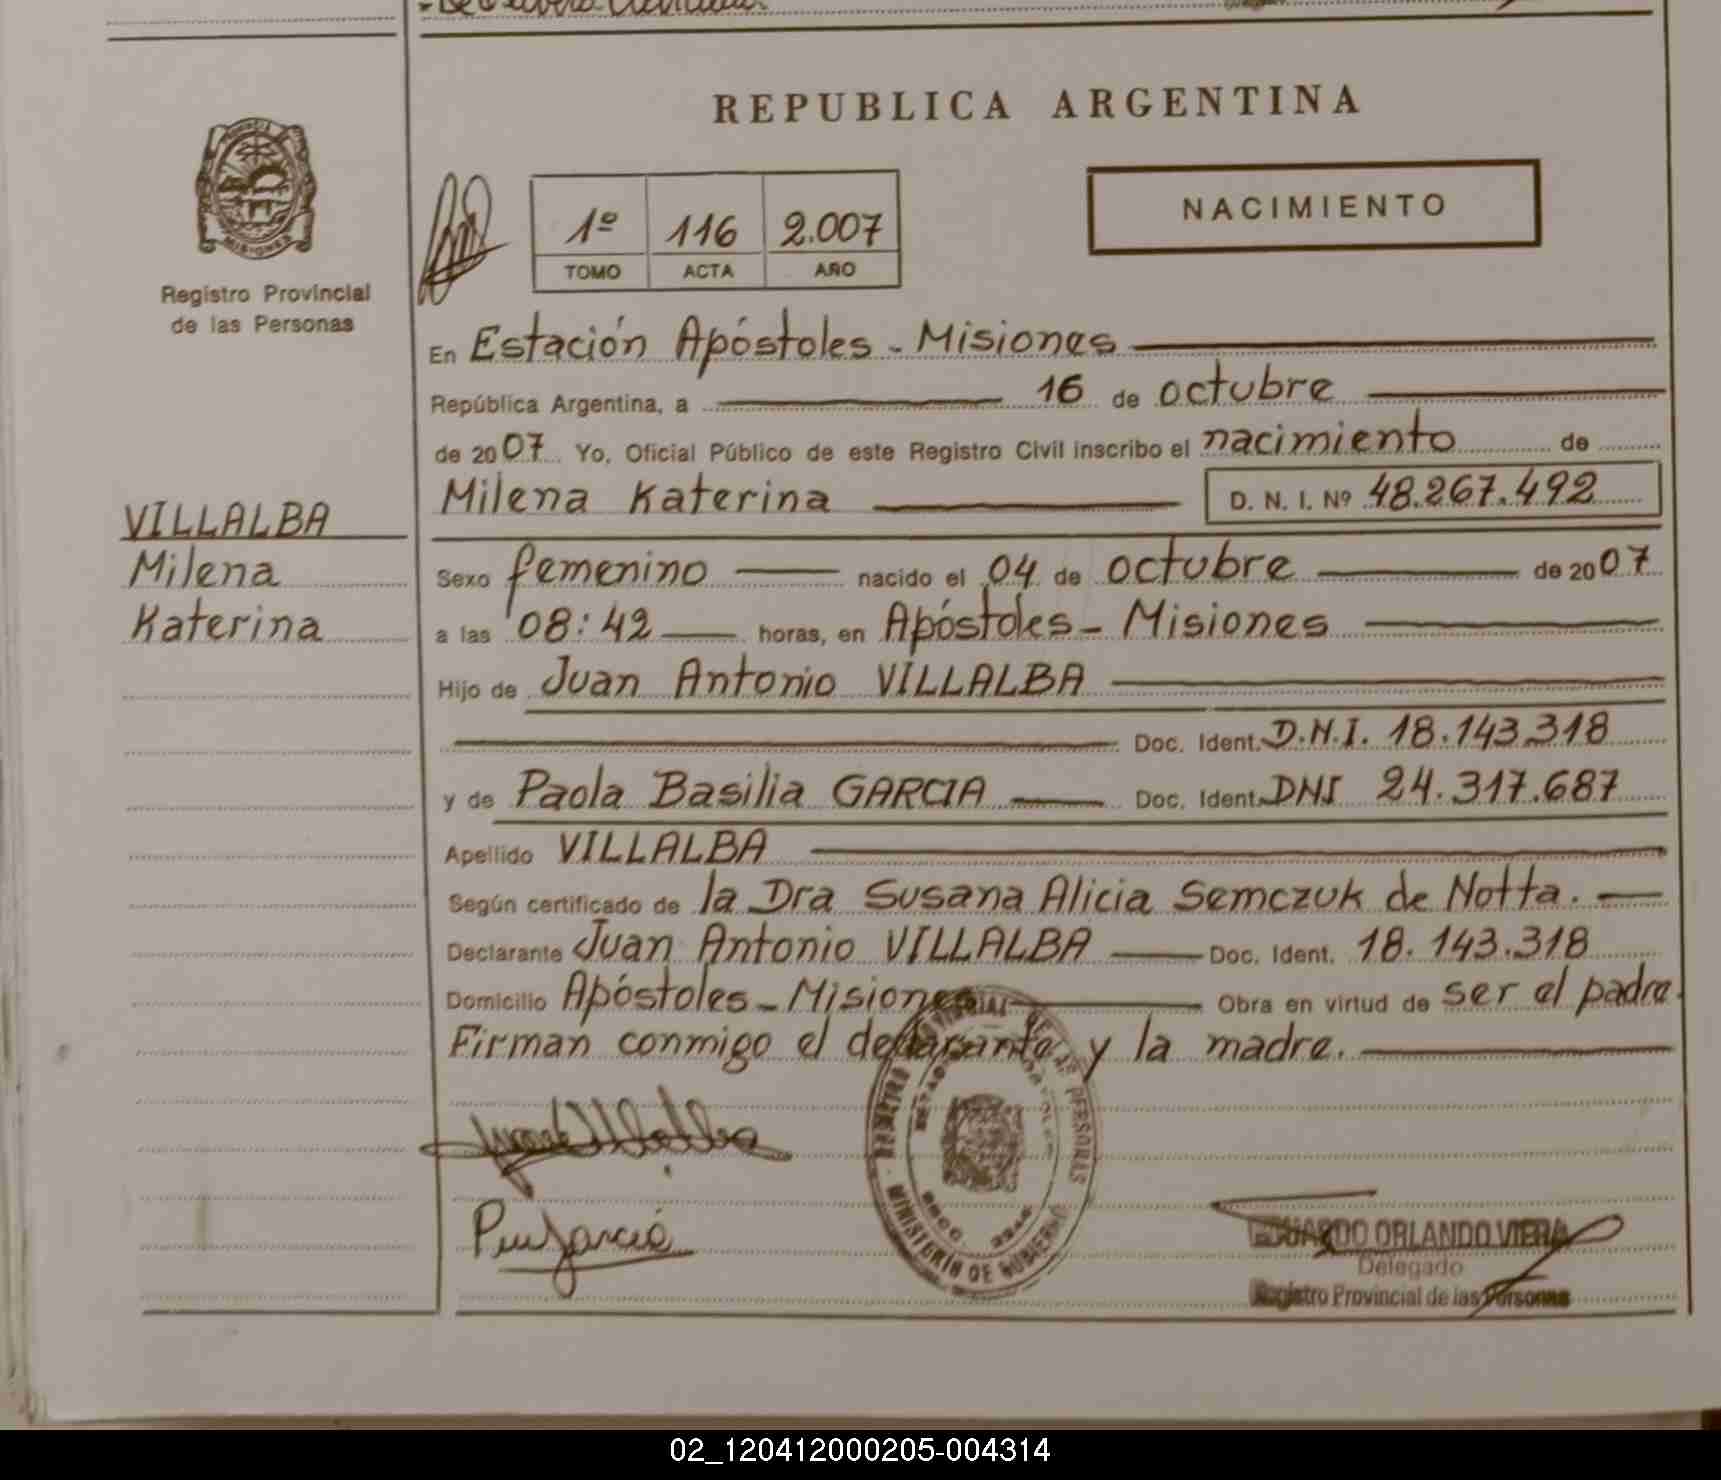 REPUBLICA ARGENTINA
PROVINCIA DE
MISIONES
Registro Provincial
de las Personas
1º 116 2.007
TOMO ACTA AÑO
NACIMIENTO
En Estación Apóstoles - Misiones
República Argentina, a 16 de octubre
de 2007 Yo, Oficial Público de este Registro Civil inscribo el nacimiento de
Milena Katerina D. N. I. Nº 48.267.492
VILLALBA
Milena
Katerina
Sexo femenino nacido el 04 de octubre de 2007
a las 08:42 horas, en Apóstoles - Misiones
Hijo de Juan Antonio VILLALBA
Doc. Ident. D.N.I. 18.143.318
y de Paola Basilia GARCIA Doc. Ident. DNI 24.317.687
Apellido VILLALBA
Según certificado de la Dra Susana Alicia Semczuk de Notta.
Declarante Juan Antonio VILLALBA Doc. Ident. 18.143.318
Domicilio Apóstoles - Misiones Obra en virtud de ser el padre.
Firman conmigo el declarante y la madre.
REGISTRO PROVINCIAL DE LAS PERSONAS
MINISTERIO DE GOBIERNO
EDUARDO ORLANDO VIERA
Delegado
Registro Provincial de las Personas
02_120412000205-004314